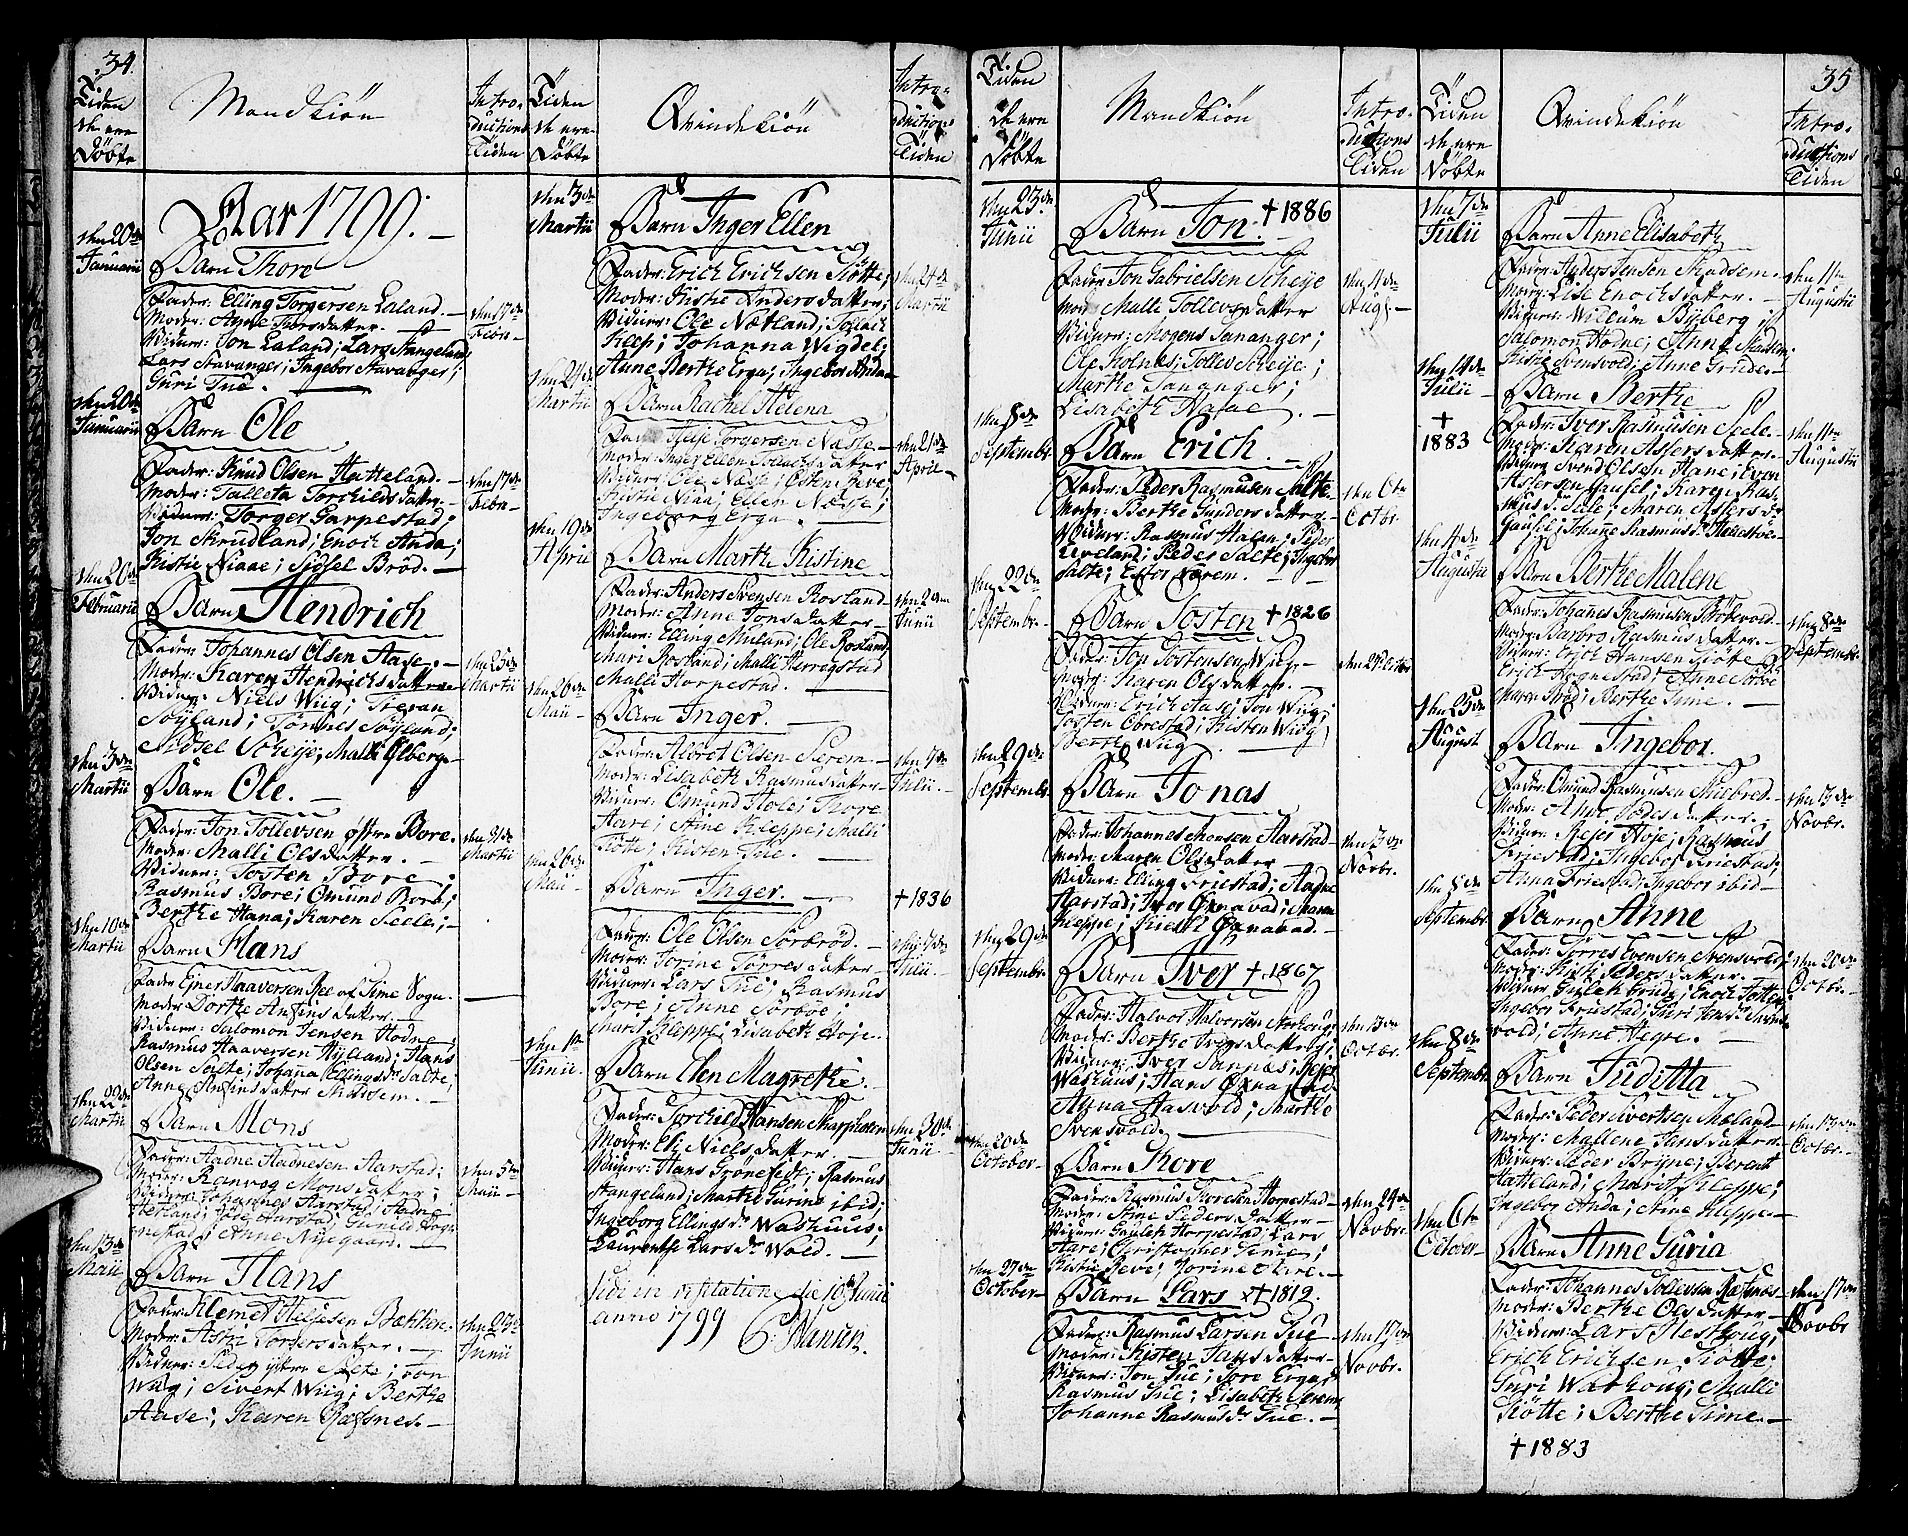 34.
Tiden
de ere
Döbte
Mandkiön
Intro-
ductions
Tiden
Aar 1799.
den 20de
Januarii
Barn Thore
Fader: Elling Torgersen Laland.
Moder: Anne Thorsdatter.
Vidner: Jon Laland; Lars Stangeland
Lars Stavanger; Ingebor Stavanger;
Guri Tue.
den 17de
Febr.
den 20de
Januarii
Barn Ole
Fader: Knud Olsen Hatteland.
Moder: Talleta Torchildsdatter.
Vidner: Torger Garpestad;
Jon Skrudland; Enoch Anda;
Kistie Niaae; Sidsel Bröd.
den 17de
Febr.
den 20de
Februarii
Barn Hendrich
Fader: Johannes Olsen Aase.
Moder: Karen Hendrichsdatter
Vidner: Niels Wiig; Trevan
Söyland; Törnes Söyland;
Sidsel Scheije; Malli Elberg
den 25de
Martii
den 3de
Martii
Barn Ole.
Fader: Jon Tollevsen öffre Bore.
Moder: Malli Olsdatter.
Vidner: Tosten Bore;
Rasmus Bore; Omund Bore;
Berthe Hana; Karen Seele;
den 21de
Martii
den 10de
Martii
Barn Hans
Fader Ejner Haaversen Ree af Time Sogn.
Moder Dorthe Anfinsdatter.
Vidner: Salomon Jensen Hodne;
Rasmus Haaversen Hylland; Hans
Olsen Salte; Johanna Ellingsdr Salte;
Anne Anfinsdatter Skadsem.
den 22de
Martii
Barn Mons
Fader: Aadne Aadnesen Aarstad;
Moder: Ranvog Monsdatter;
Vidner: Johannes Harstad; Aadne
Hetland; Gise Aarstad; Gunild Fogn
nestad; Anne Nijegaard.
den 5te
Maii
den 13de
Maii
Barn Hans
Fader: Klemet Heljesen Bekken.
Moder: Asin Torgersdatter.
Vidner: Peder yttre Salte; Jon
Wiig; Sivert Wiig; Berthe
Aase; Karen Refsnes.
den 23de
Junii
Tiden
de ere
Döbte
Qvindekiön
Intro-
ductions
Tiden
den 3de
Martii
Barn Inger Ellen
Fader: Erich Erichsen Siötte;
Moder: Kistie Andersdatter;
Vidner: Ole Nætland; Tollach
Klep; Johanna Wigdel;
Anne Berthe Erga; Ingebor Anda
den 24de
Martii
den 24de
Martii
Barn Rachel Helena
Fader Helje Torgersen Næsse
Moder: Inger Ellen Tollachsdatter
Vidner: Ole Næse; Osten Reve;
Kistie Niaa; Ellen Næsse;
Ingeborg Erga.
den 21de
April
den 19de
April
Barn Marthe Kistine
Fader: Anders Svensen Rosland
Moder: Anne Jonsdatter
Vidner: Elling Mæland; Ole Rosland;
Mari Rosland; Malli Herregstad
Malli Horpestad.
den 2den
Junii
den 26de
Maii
Barn Inger.
Fader: Albret Olsen Serem.
Moder: Lisabeth Rasmusdatter
Vidner: Omund Hole; Thore
Aare; Anne Kleppe; Malli
Tiöte; Kisten Tue.
den 7de
Julii.
den 26de
Maii
Barn Inger.
+ 1836
Fader: Ole Olsen Sörbröd.
Moder: Jorine Törresdatter
Vidner: Lars Tue; Rasmus
Bore; Anne Sörböe;
Marit Kleppe; Lisabeth Hoje.
den 7de
Julii.
den 1te
Junii.
Barn Elen Magrethe.
Fader: Torchild Hansen Skarpholm
Moder: Eli Nielsdatter.
Vidner: Hans Grönefelt; Rasmus
Stangeland; Marthe Gurine ibid;
Ingeborg Ellingsdr Washuus;
Laurentse Larsdr Wold.
den 30te
Junii.
Vidi in visitatione die 10de Junii
anno 1799 P. Hansen.
Tiden
de ere
Döbte
Mandkiön
Intro-
ductions
Tiden
den 23de
Junii
Barn Jon. + 1886
Fader Jon Gabrielsen Scheije
Moder Malli Tollevsdatter
Vidner: Mogens Tananger;
Ole Kolnes; Tollev Scheije;
Marthe Tananger;
Lisabeth Hane.
den 11de
Aug.
den 8de
Septembr
Barn Erich.
Fader: Peder Rasmusen Salte
Moder: Berthe Gundersdatter.
Vidner: Rasmus Halen; Peder
Lieveland; Peder Salte; Ingebor
Salte; Ester Norem.
den 6te
Octbr.
den 22de
Septembr.
Barn Tosten + 1826
Fader: Jon Tostensen Wiig.
Moder: Karen Olsdatter.
Vidner: Erich Aase; Jon Wiig;
Tosten Obrestad; Kisten Wiig
Berthe Wiig
den 29de
Septembr.
Barn Jonas
Fader: Johannes Monsen Harstad
Moder: Maren Olsdatter
Vidner: Elling Friestad; Aadne
Harstad; Iver Öxnavad; Maren
Kleppe; Kisti Öxnavad.
den 3de
Novbr.
den 29de
Septembr.
Barn Iver + 1867
Fader: Halvor Halvorsen
Moder: Berthe Iversdatter;
Vidner: Iver Sannæs;
Washuus; Hans Öxnavad
Anna Aasvold; Marthe
Svensvold.
den 13de
Octobr.
den 20de
October
Barn Thore
Fader: Rasmus Thoresen Horpestad
Moder: Stine Pedersdatter
Vidner: Gudleh Horpestad; Lars
Aare; Christopher Time;
Kistie Reve; Jorine Aare.
den 24de
Novbr.
den 27de
October
Barn Lars + 1812.
Fader: Rasmus Larsen Tue
Moder: Kisten Jansdatter
Vidner: Jon Tue; Tore Erga;
Rasmus Tue; Lisabeth Serem
Johanne Rasmusdr Tue.
den 17de
Novbr.
35
Tiden
de ere
Döbte
Qvindekiön
Intro-
ductions
Tiden
den 7de
Julii
Barn Anne Elisabeth
Fader: Anders Jensen Skadsem.
Moder: Lise Enochsdatter.
Vidner: Willum Byberg;
Salomon Hodne; Anne Skadsem;
Kistie Svensvold; Anne Grude.
den 11te
Augustii
den 14de
Julii
+
1883
Barn Berthe
Fader: Iver Rasmusen Seele.
Moder: Karen Assersdatter.
Vidner Svend Olsen Hane; Even
Assersen Gausel; Karen Ras-
musdr Sele; Maren Assersdr
Gausel; Johanne Rasmusdr
den 11te
Augustii
den 4de
Augustii
Barn Berthe Malene
Fader: Johanes Rasmusen Bröbevold
Moder: Barbro Rasmusdatter.
Vidner: Erich Hansen Siötte
Erich Fognestad; Anne Sörböe
Maren Bröd; Berthe Time.
den 8de
Septembr.
den 25de
August
Barn Ingebor.
Fader: Omund Rasmusen Skiebred.
Moder: Anne Pedersdatter;
Vidner: Peder Hoje; Rasmus
Friestad; Ingebor Friestad;
Anna Friestad; Ingebor ibid
den 13de
Novbr.
den 8de
Septembr.
Barn Anne
Fader: Törres Evensen Svensvold
Moder: Kisti Pedersdatter.
Vidner Gudleh Grude; Enoch Totten
Ingebor Friestad; Guri Svens-
vold; Anne Hegre.
den 20de
Octbr.
den 8de
Septembr.
Barn Juditta
Fader: Peder Sivertsen Mæland
Moder: Mallene Hansdatter.
Vidner: Peder Bryne; Berent
Hatteland; Marit Kleppe;
Ingebor Anda; Stine Kleppe.
den 13de
Octobr.
den 6te
October
Barn Anne Guria
Fader: Johannes Tollevsen Refsnes
Moder: Berthe Olsdatter
Vidner: Lars Nesthoug;
Erich Erichsen Siötte;
Guri Warhoug; Malli
Siötte; Berthe Time.
den 17de
Novbr
+ 1883